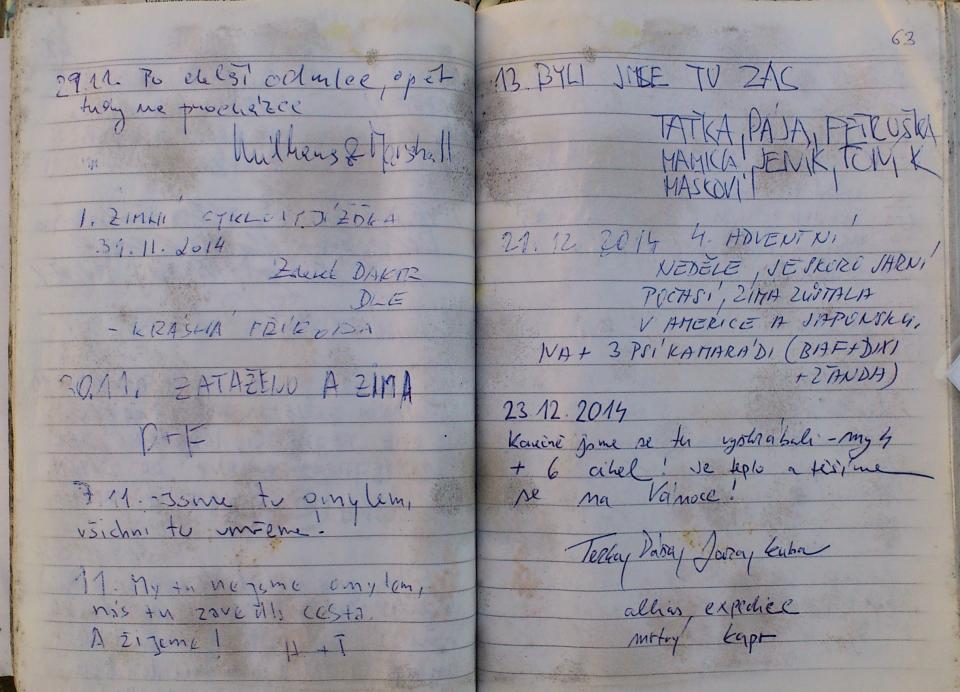 29.11. Po delší odmlce, opět
tudy na procházce
& Marshall
1. ZIMNÍ CYKLOVYJÍŽĎKA
31.11. 2014
Zdeněk
DLE
- KRÁSNÁ PŘÍRODA
30.11. ZATAŽENO A ZIMA
P+F
11. Jsme tu omylem,
všichni tu umřeme!
11. My tu nejsme omylem,
nás tu zavedla cesta.
A žijeme! H + T
63
13. BYLI JSME TU ZAS
TAŤKA, PÁJA, PETRUŠKA
MAMKA, JENÍK, TOMÍK
MASKOVI
21.12. 2014 4. ADVENTNÍ
NEDĚLE, JE SKORO JARNÍ
POČASÍ, ZIMA ZŮSTALA
V AMERICE A JAPONSKU.
+ 3 PSÍ KAMARÁDI (BAF+DIXI
+ŽANDA)
23.12.2014
Konečně jsme se tu vyškrábali - my 4
+ 6 cihel! Je teplo a těšíme
se na Vánoce!
Terka, Kuba
alias expedice
mrtvý kapr